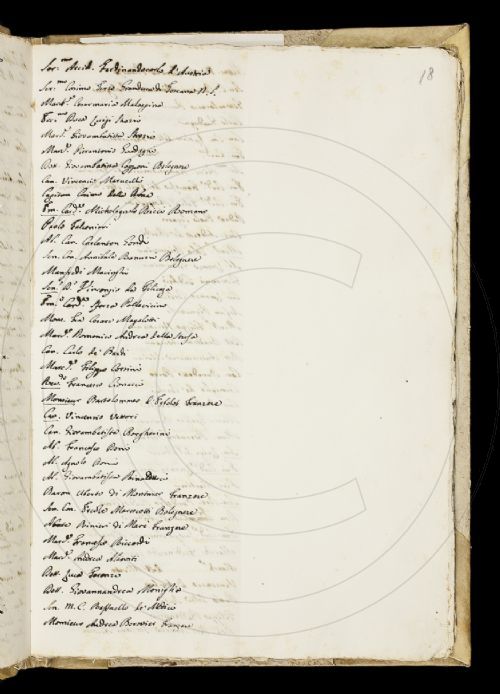 18
Ser.mo Arcid. Ferdinandocarlo d'Austria
Ser.mo Cosimo Terzo Granduca di Toscana N. S.
March.e Cosermaria Malaspina
Ser.mo Duca Luigi
Marc. Giovambatista Strozzi
Marc. Pierantonio
Dott. Giovambatista Capponi Bolognese
Can. Vincenzio Marucelli
Capitan Cosimo della Rena
Em. Card. Michelagnolo Ricci Romano
Paolo Falconieri
Al. Cav. Carlanton Gondi
Sen. Con. Annibale Ranuzzi Bolognese
Manfredi Macigni
Sen. D. Vincenzio da Filicaja
Em.o Card. Sforza Pallavicino
Mons. Fra Cesare Magalotti
Marc. Domenico Andrea della Stufa
Can. Carlo de' Bardi
Marc. Filippo Corsini
Rev.do Francesco Cionacci
Monsieur Bartolommeo d'Erbelot Franzese
Cav. Vincenzio Vettori
Can. Giovambatista Borgherini
Al. Francesco Doni
Al. Agnolo Doni
Al. Giovambatista Rinuccini
Baron Alberto di Franzese
Sen. Con. Ercole Marescotti Bolognese
Abate Rinieri di Maré Franzese
Marc. Francesco Riccardi
Marc. Andrea Alamanni
Dott. Luca Terenzi
Dott. Giovannandrea Moniglia
Sen. M. C. Raffaello de' Medici
Monsieur Andrea Franzese